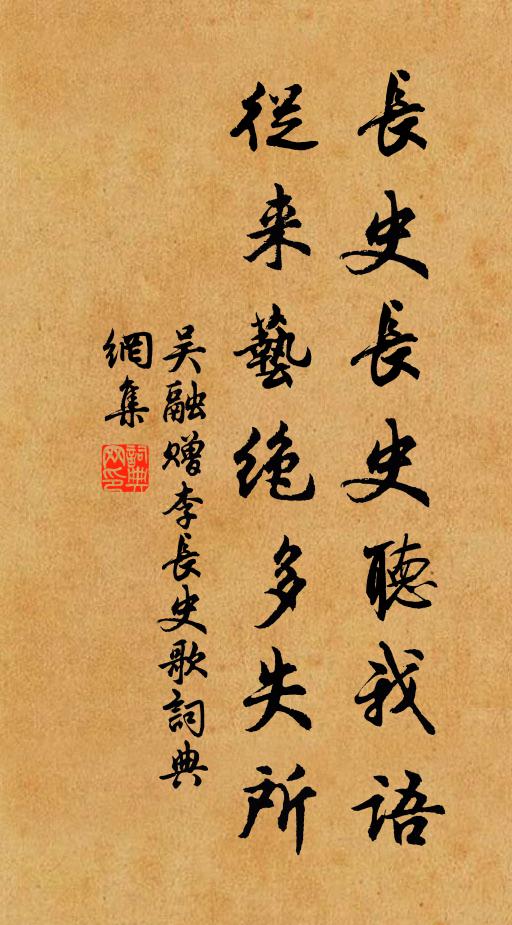 長史長史聽我語
從来藝絶多失所
吴融赠李長史歌詞典
網集
詞典
网印